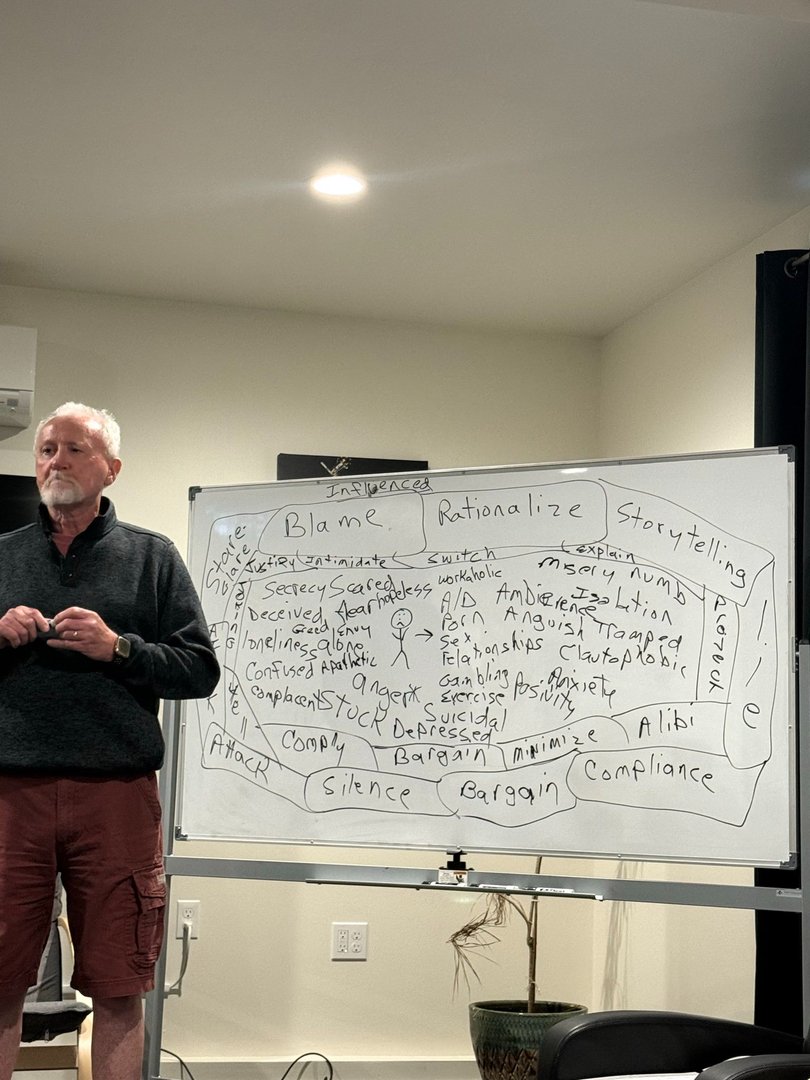 Influenced
Blame
Rationalize
Storytelling
Justify
Intimidate
Switch
explain
Secrecy
Scared
hopeless
workaholic
misery
numb
Deceived
fear
A/D
Isolation
Greed
Envy
Porn
Anguish
loneliness
alone
Sex
relationships
Confused
Apathetic
Gambling
Anxiety
complacent
anger
exercise
Stuck
Suicidal
Depressed
Comply
Bargain
minimize
Alibi
Attack
Silence
Bargain
Compliance